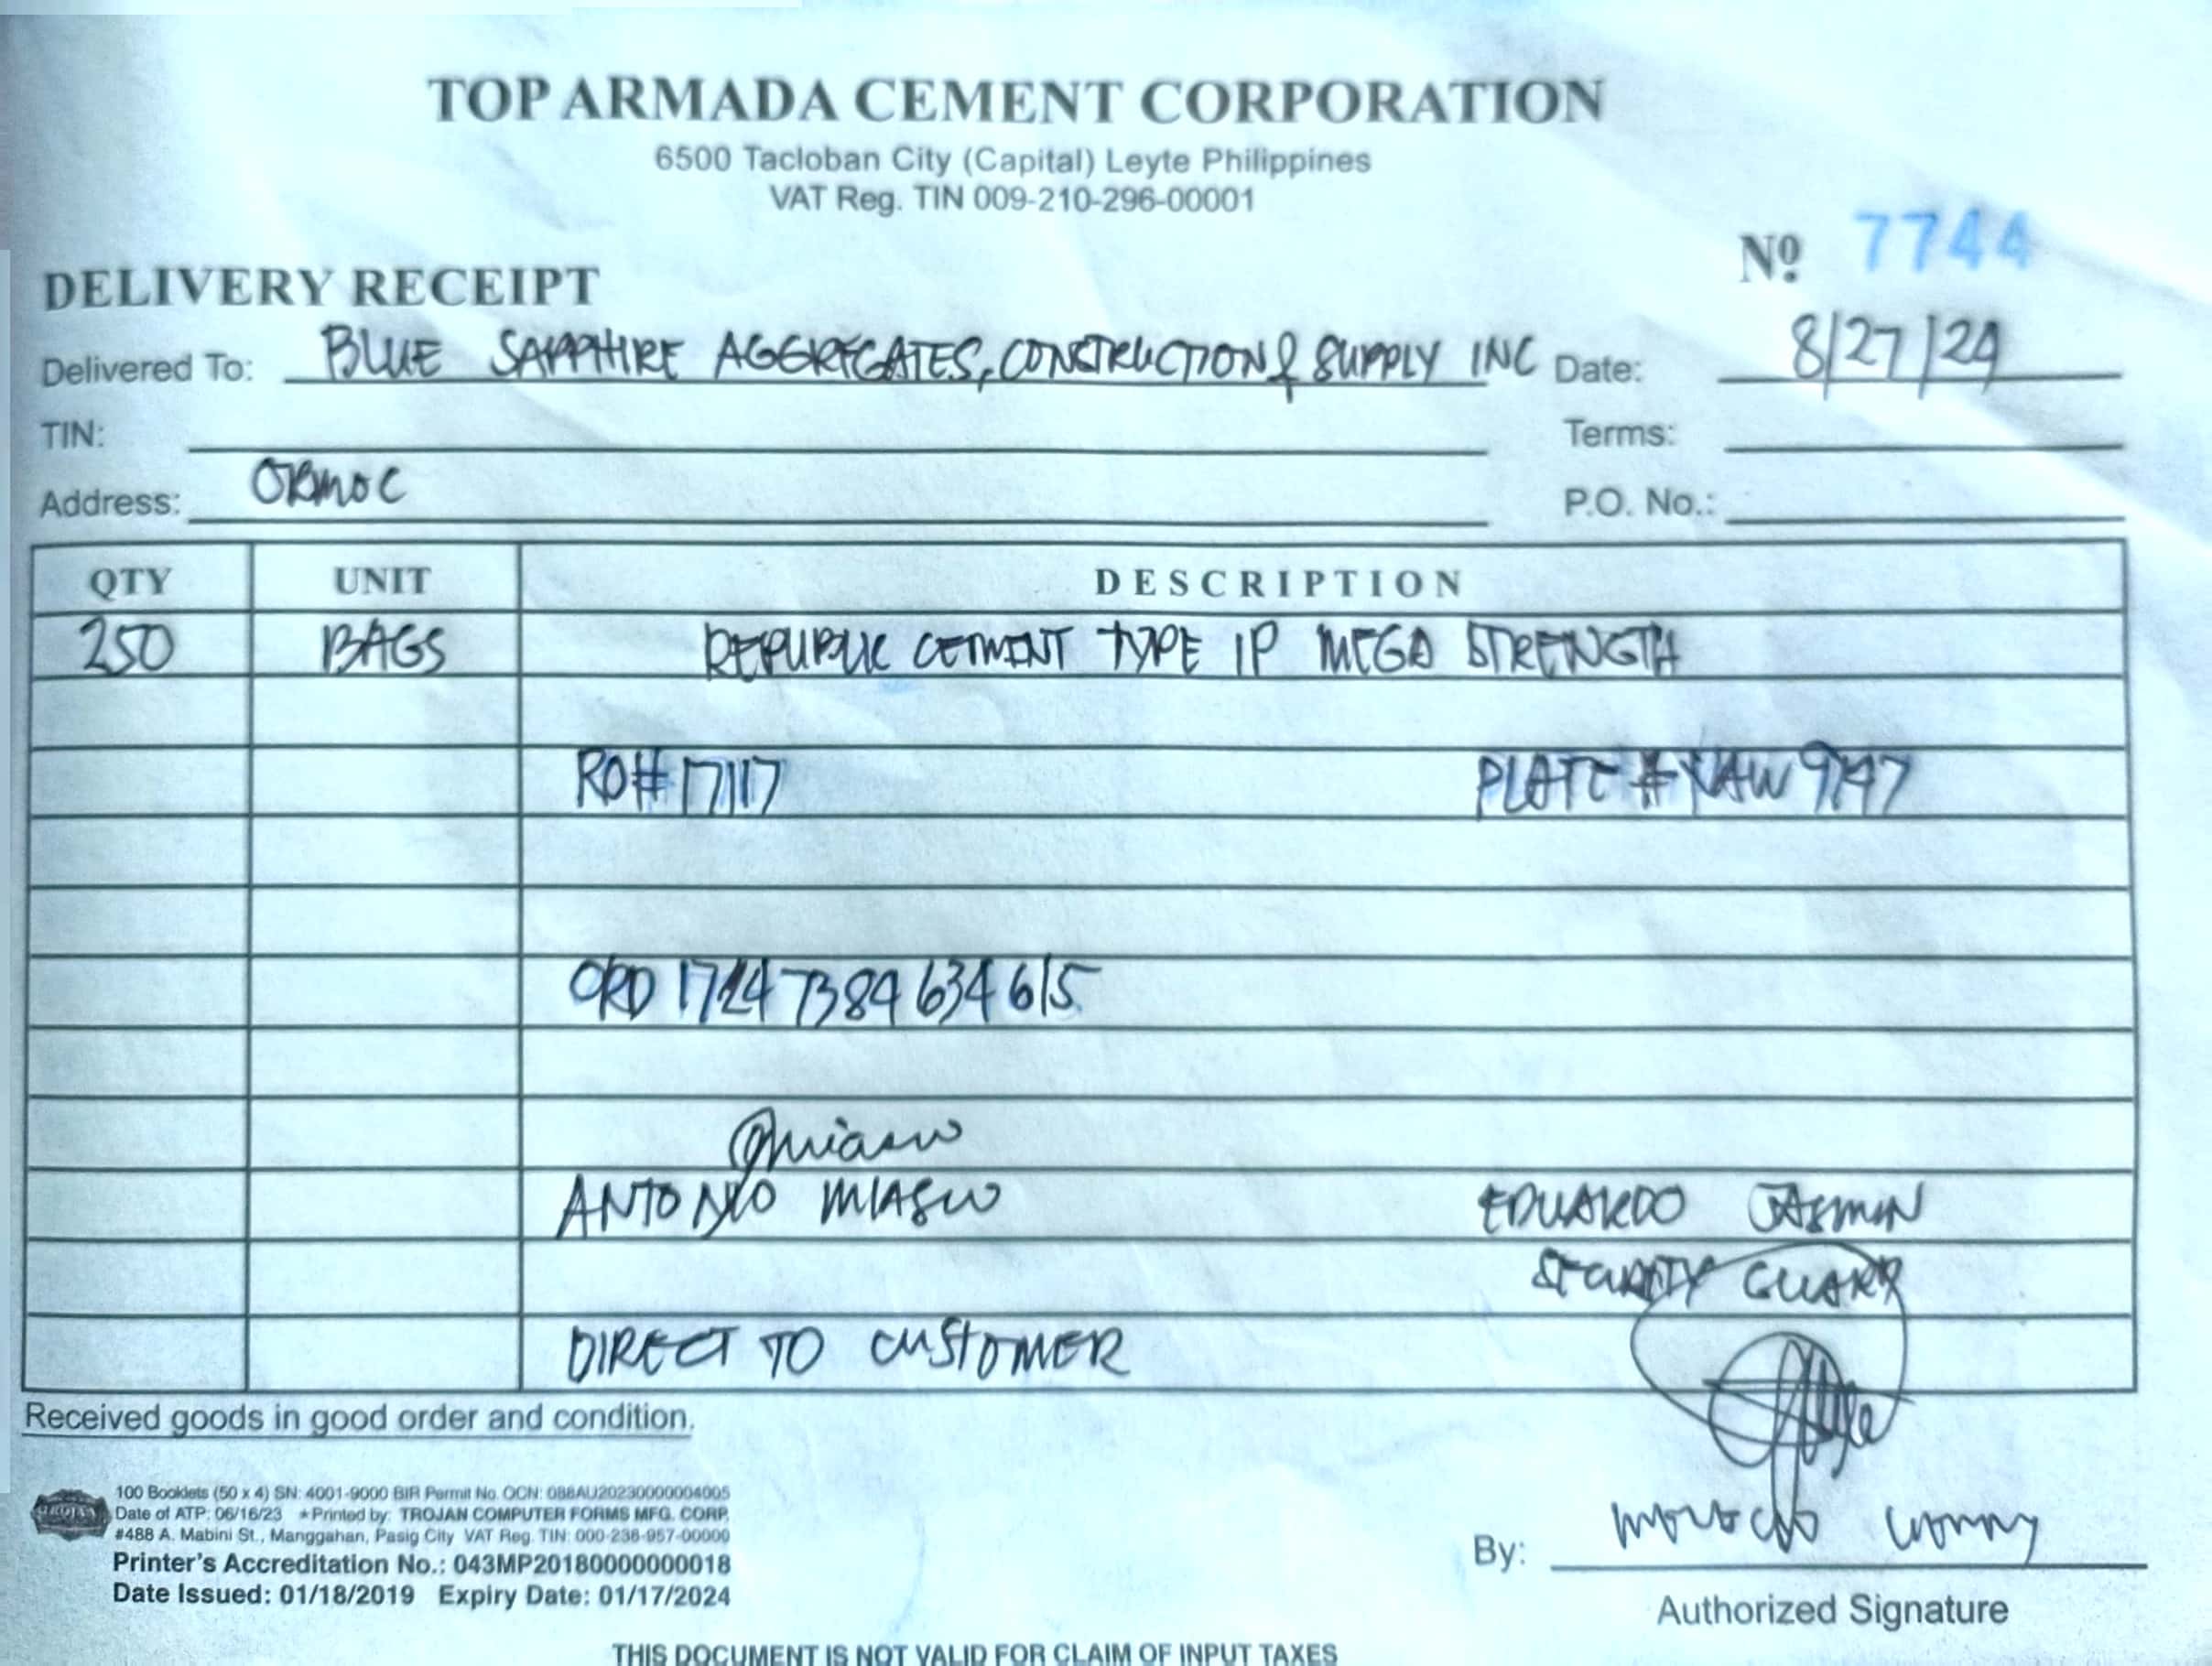 TOP ARMADA CEMENT CORPORATION
6500 Tacloban City (Capital) Leyte Philippines
VAT Reg. TIN 009-210-296-00001
Nº 7744
DELIVERY RECEIPT
Delivered To: BLUE SAPPHIRE AGGREGATES, CONSTRUCTION & SUPPLY INC Date: 8/27/24
TIN: Terms:
Address: ORMOC P.O. No.:
QTY UNIT DESCRIPTION
250 BAGS REPUBLIC CEMENT TYPE 1P MEGA STRENGTH
RO# 17117 PLATE #
ORD 1724 7384 634 615
ANTONIO
EDUARDO JASMIN
SECURITY GUARD
DIRECT TO CUSTOMER
Received goods in good order and condition.
100 Booklets (50 x 4) SN: 4001-9000 BIR Permit No. OCN: 088AU20230000004005
Date of ATP: 06/16/23 ★Printed by: TROJAN COMPUTER FORMS MFG. CORP.
#488 A. Mabini St., Manggahan, Pasig City VAT Reg. TIN: 000-238-957-00000
Printer's Accreditation No.: 043MP20180000000018
Date Issued: 01/18/2019 Expiry Date: 01/17/2024
By:
Authorized Signature
THIS DOCUMENT IS NOT VALID FOR CLAIM OF INPUT TAXES